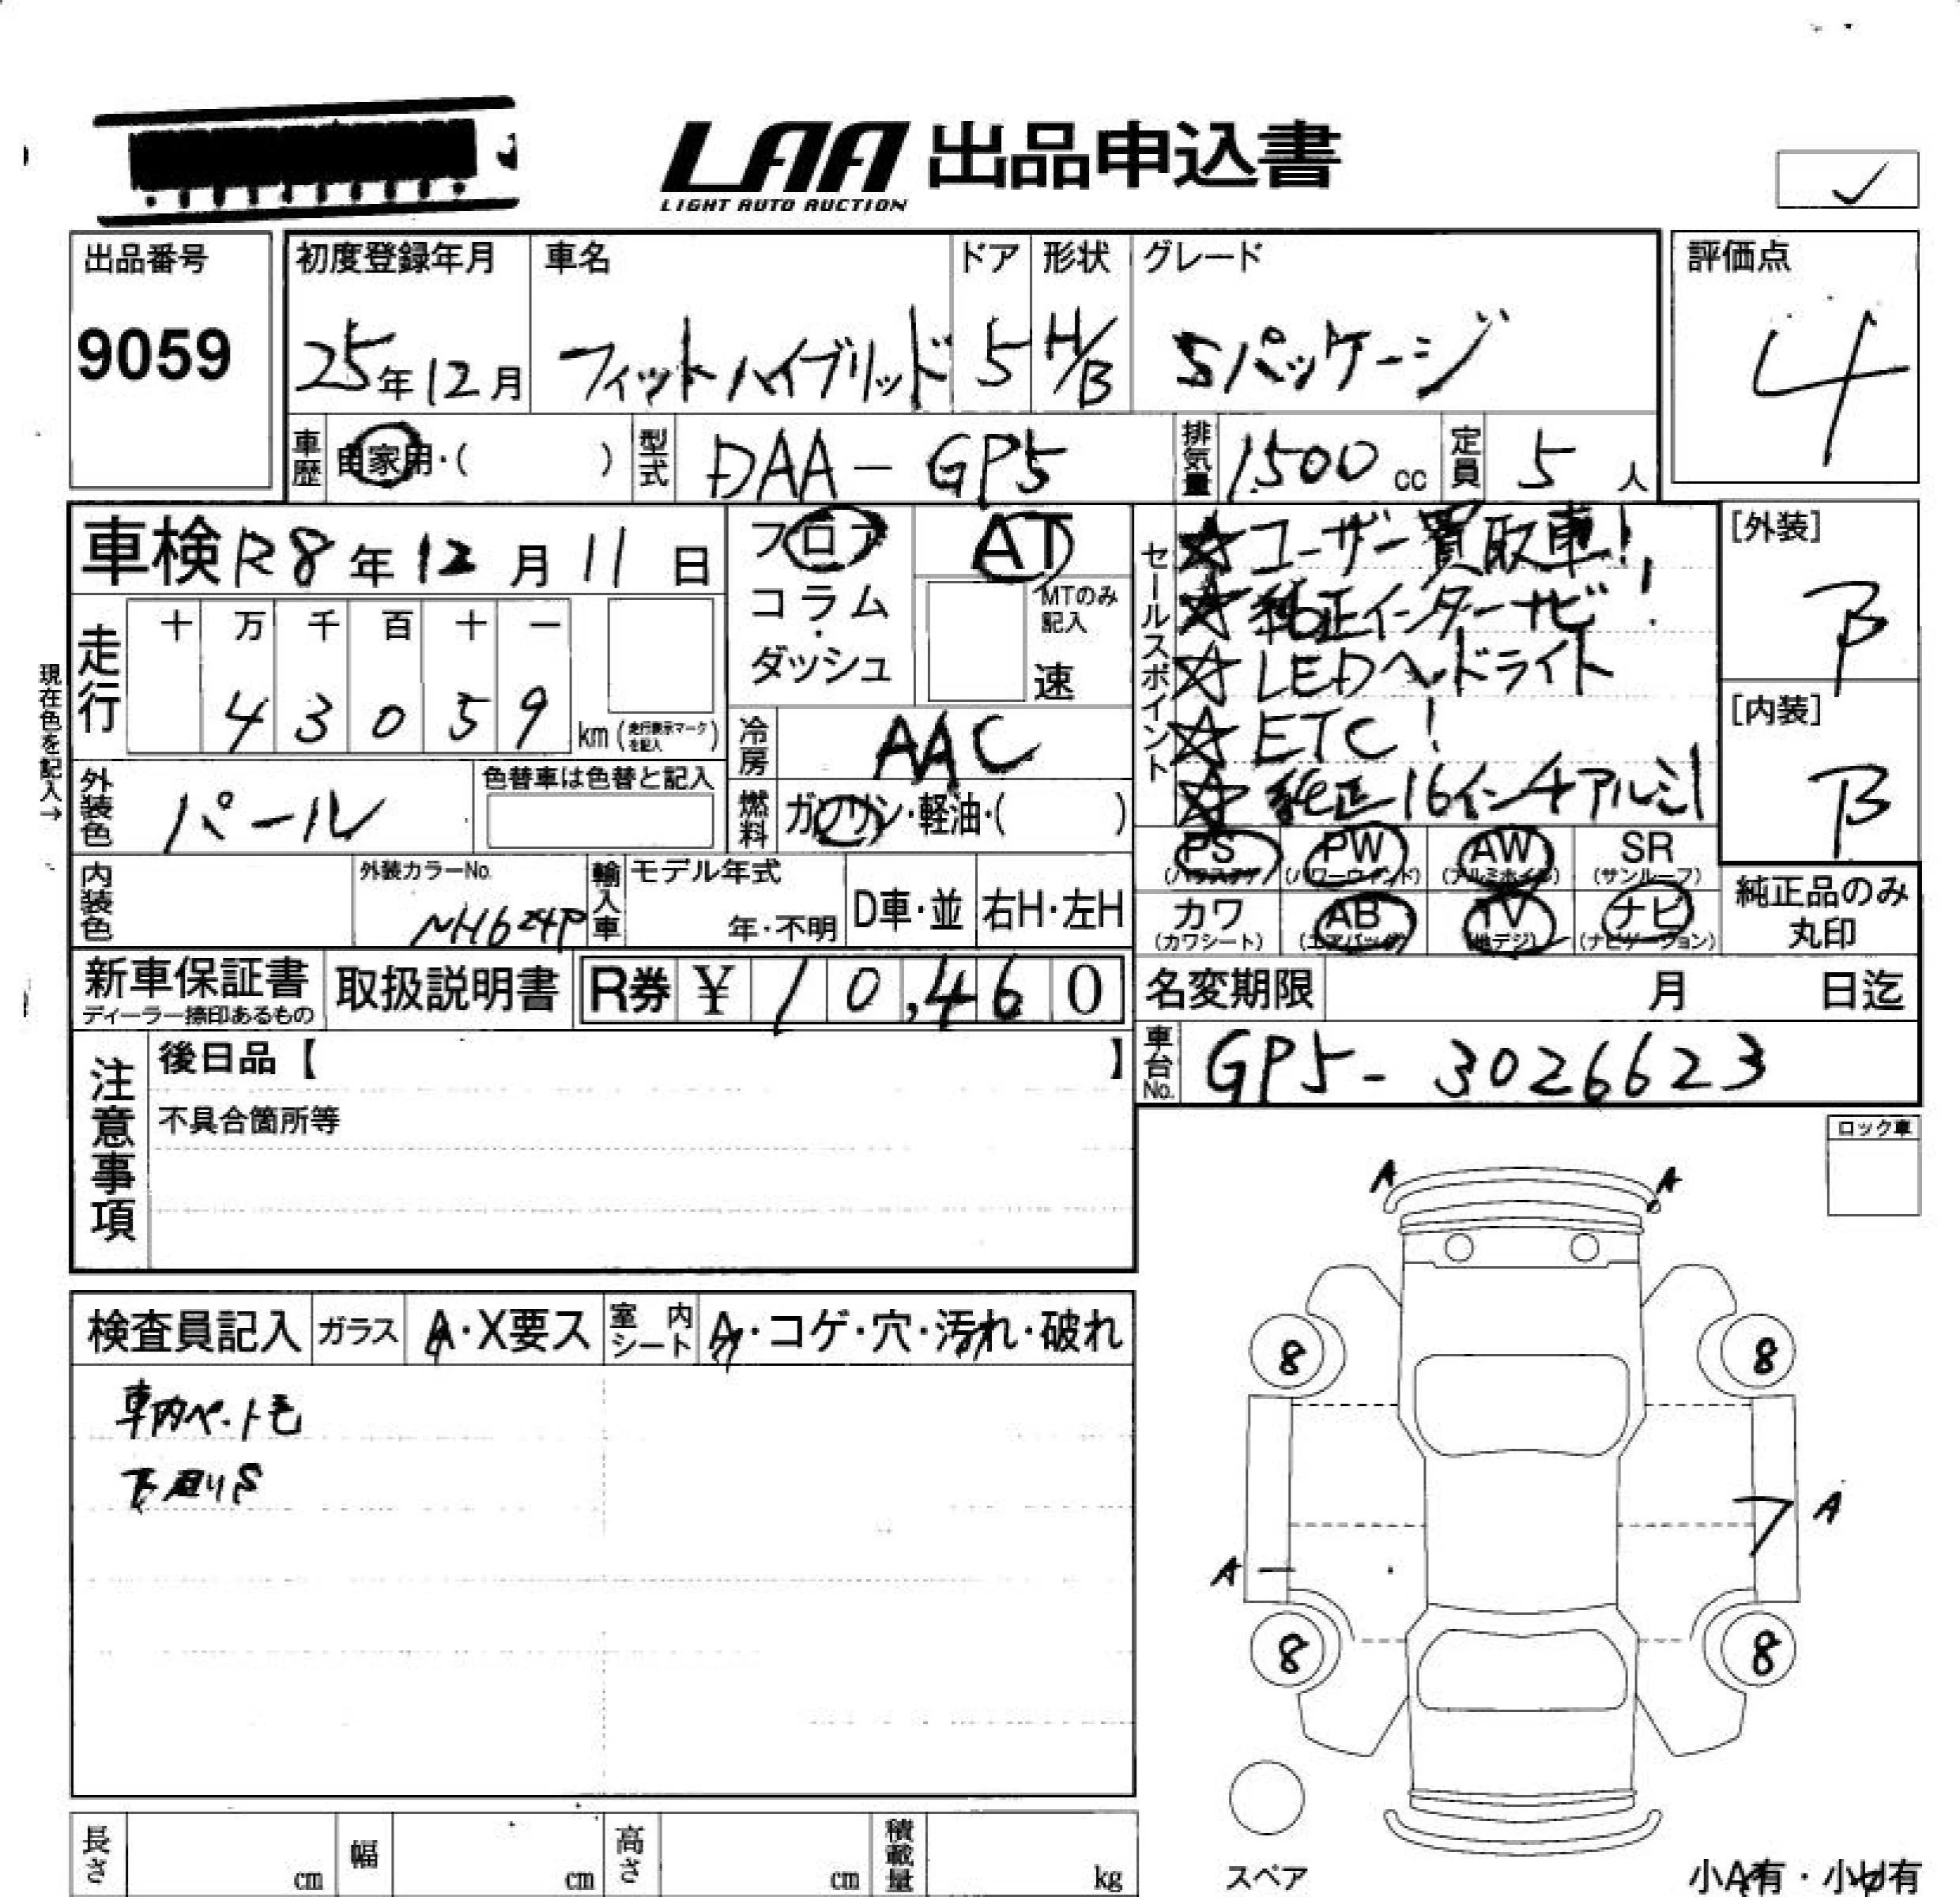 LAA 出品申込書
LIGHT AUTO AUCTION
出品番号
9059
初度登録年月
25年12月
車名
フィットハイブリッド
ドア
5
形状
H/B
グレード
Sパッケージ
評価点
4
車歴
自家用・( )
型式
DAA-GP5
排気量
1500 cc
定員
5 人
車検 R8年12月11日
フロア
コラム
・
ダッシュ
AT
MTのみ
記入
速
セールスポイント
☆ユーザー買取車!
☆純正インターナビ!
☆LEDヘッドライト
☆ETC!
☆純正16インチアルミ!
[外装]
B
[内装]
B
現在色を記入→
走行
十 万 千 百 十 一
4 3 0 5 9
km(走行表示マークを記入)
冷房
AAC
外装色
パール
色替車は色替と記入
燃料
ガソリン・軽油・( )
PS
(パワステ)
PW
(パワーウィンド)
AW
(アルミホイル)
SR
(サンルーフ)
内装色
外装カラーNo.
NH624P
輸入車
モデル年式
年・不明
D車・並
右H・左H
カワ
(カワシート)
AB
(エアバッグ)
TV
(地デジ)
ナビ
(ナビゲーション)
純正品のみ
丸印
新車保証書
ディーラー捺印あるもの
取扱説明書
R券 ¥ 10,460
名変期限
月 日迄
車台No.
GP5-3026623
注意事項
後日品【 】
不具合箇所等
ロック車
検査員記入
ガラス
A・X要ス
室内シート
A・コゲ・穴・汚れ・破れ
車内ペット毛
下廻りS
A A
8 8
A
A
8 8
スペア
小A有・小U有
長さ
cm
幅
cm
高さ
cm
積載量
kg